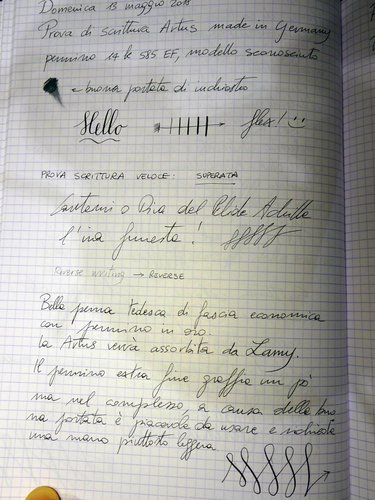 Domenica 13 maggio 2018
Prova di scrittura Artus made in Germany
pennino 14 k 585 EF, modello sconosciuto
← buona portata di inchiostro
Hello → flex! :)
PROVA SCRITTURA VELOCE: SUPERATA
Cantami o Diva del Pelide Achille
l'ira funesta!
Reverse writing → REVERSE
Bella penna tedesca di fascia economica
con pennino in oro.
La Artus verrà assorbita da Lamy.
Il pennino extra fine graffia un pò
ma nel complesso, a causa della buo
na portata è piacevole da usare e richiede
una mano piuttosto leggera